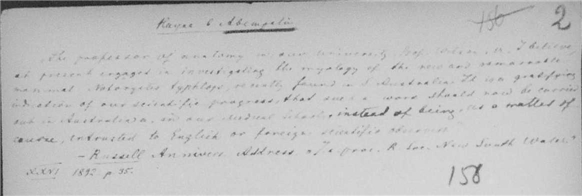 156 2
The professor of anatomy in our University, Prof. Wilson, is, I believe,
at present engaged in investigating the myology of the new and remarkable
mammal Notoryctes typhlops, recently found in S. Australia. It is a gratifying
indication of our scientific progress, that such a work should now be carried
out in Australia, in our Medical School, instead of being, as a matter of
course, entrusted to English or foreign scientific observers
- Russell Annivers. Address, J. & proc. R. Soc. New South Wales.
XXVI 1892 p. 35.
156